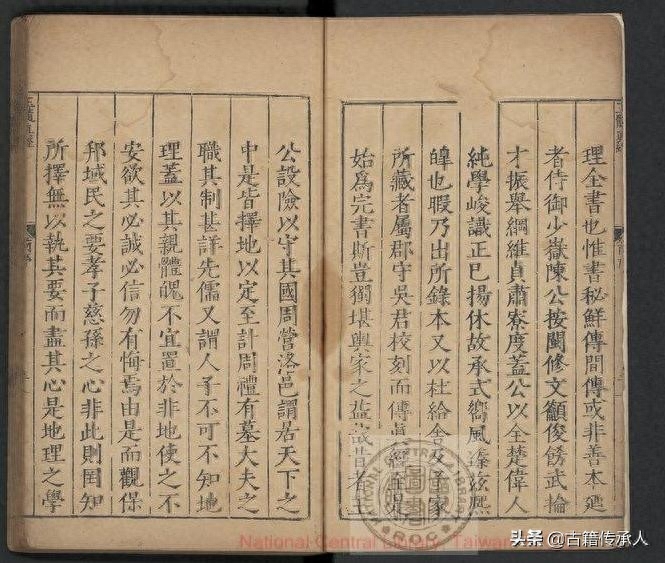 理全書也惟書秘鮮傳間傳或非善本廼
者侍御少嶽陳公按閩修文籲俊餝武掄
才振舉綱維貞肅寮度蓋公以全楚偉人
純學峻識正已揚休故承式嚮風溱茲熙
皥也暇乃出所錄本又以杜給舍及予家
所藏者屬郡守吳君校刻而傳眞經至是
始爲完書斯豈獨堪輿家之 昔者王
公設險以守其國周營洛邑謂居天下之
中是皆擇地以定至計周禮有墓大夫之
職其制甚詳先儒又謂人子不可不知地
理蓋以其親體魄不宜置於非地使之不
安欲其必誠必信勿有悔焉由是而觀保
邦域民之要孝子慈孫之心非此則罔知
所擇無以執其要而盡其心是地理之學
National Central Library, Taiwan
头条 @古籍传承人